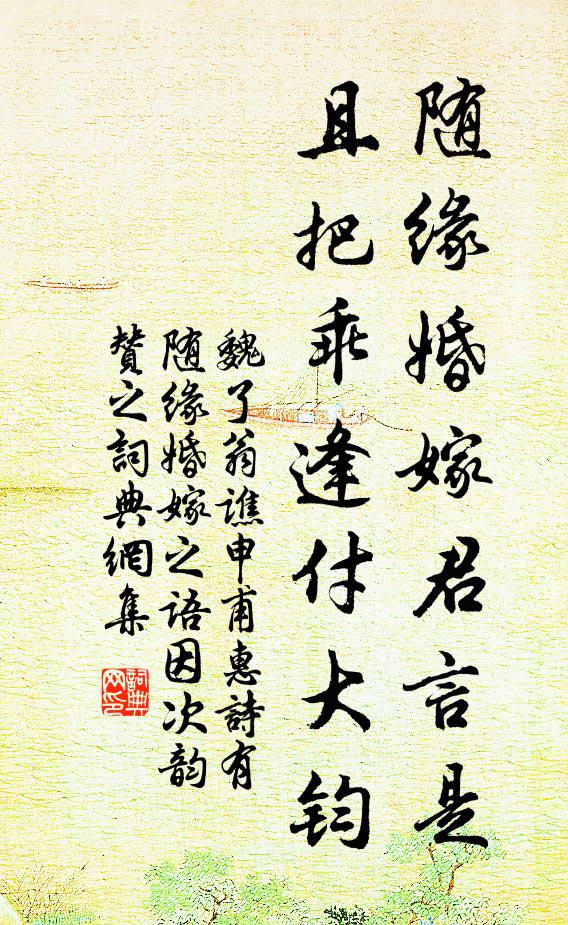 随缘婚嫁君言是
且把乖逢付大钧
魏了翁譙申甫惠詩有
随缘婚嫁之语因次韵
赞之词典網集
詞典網印